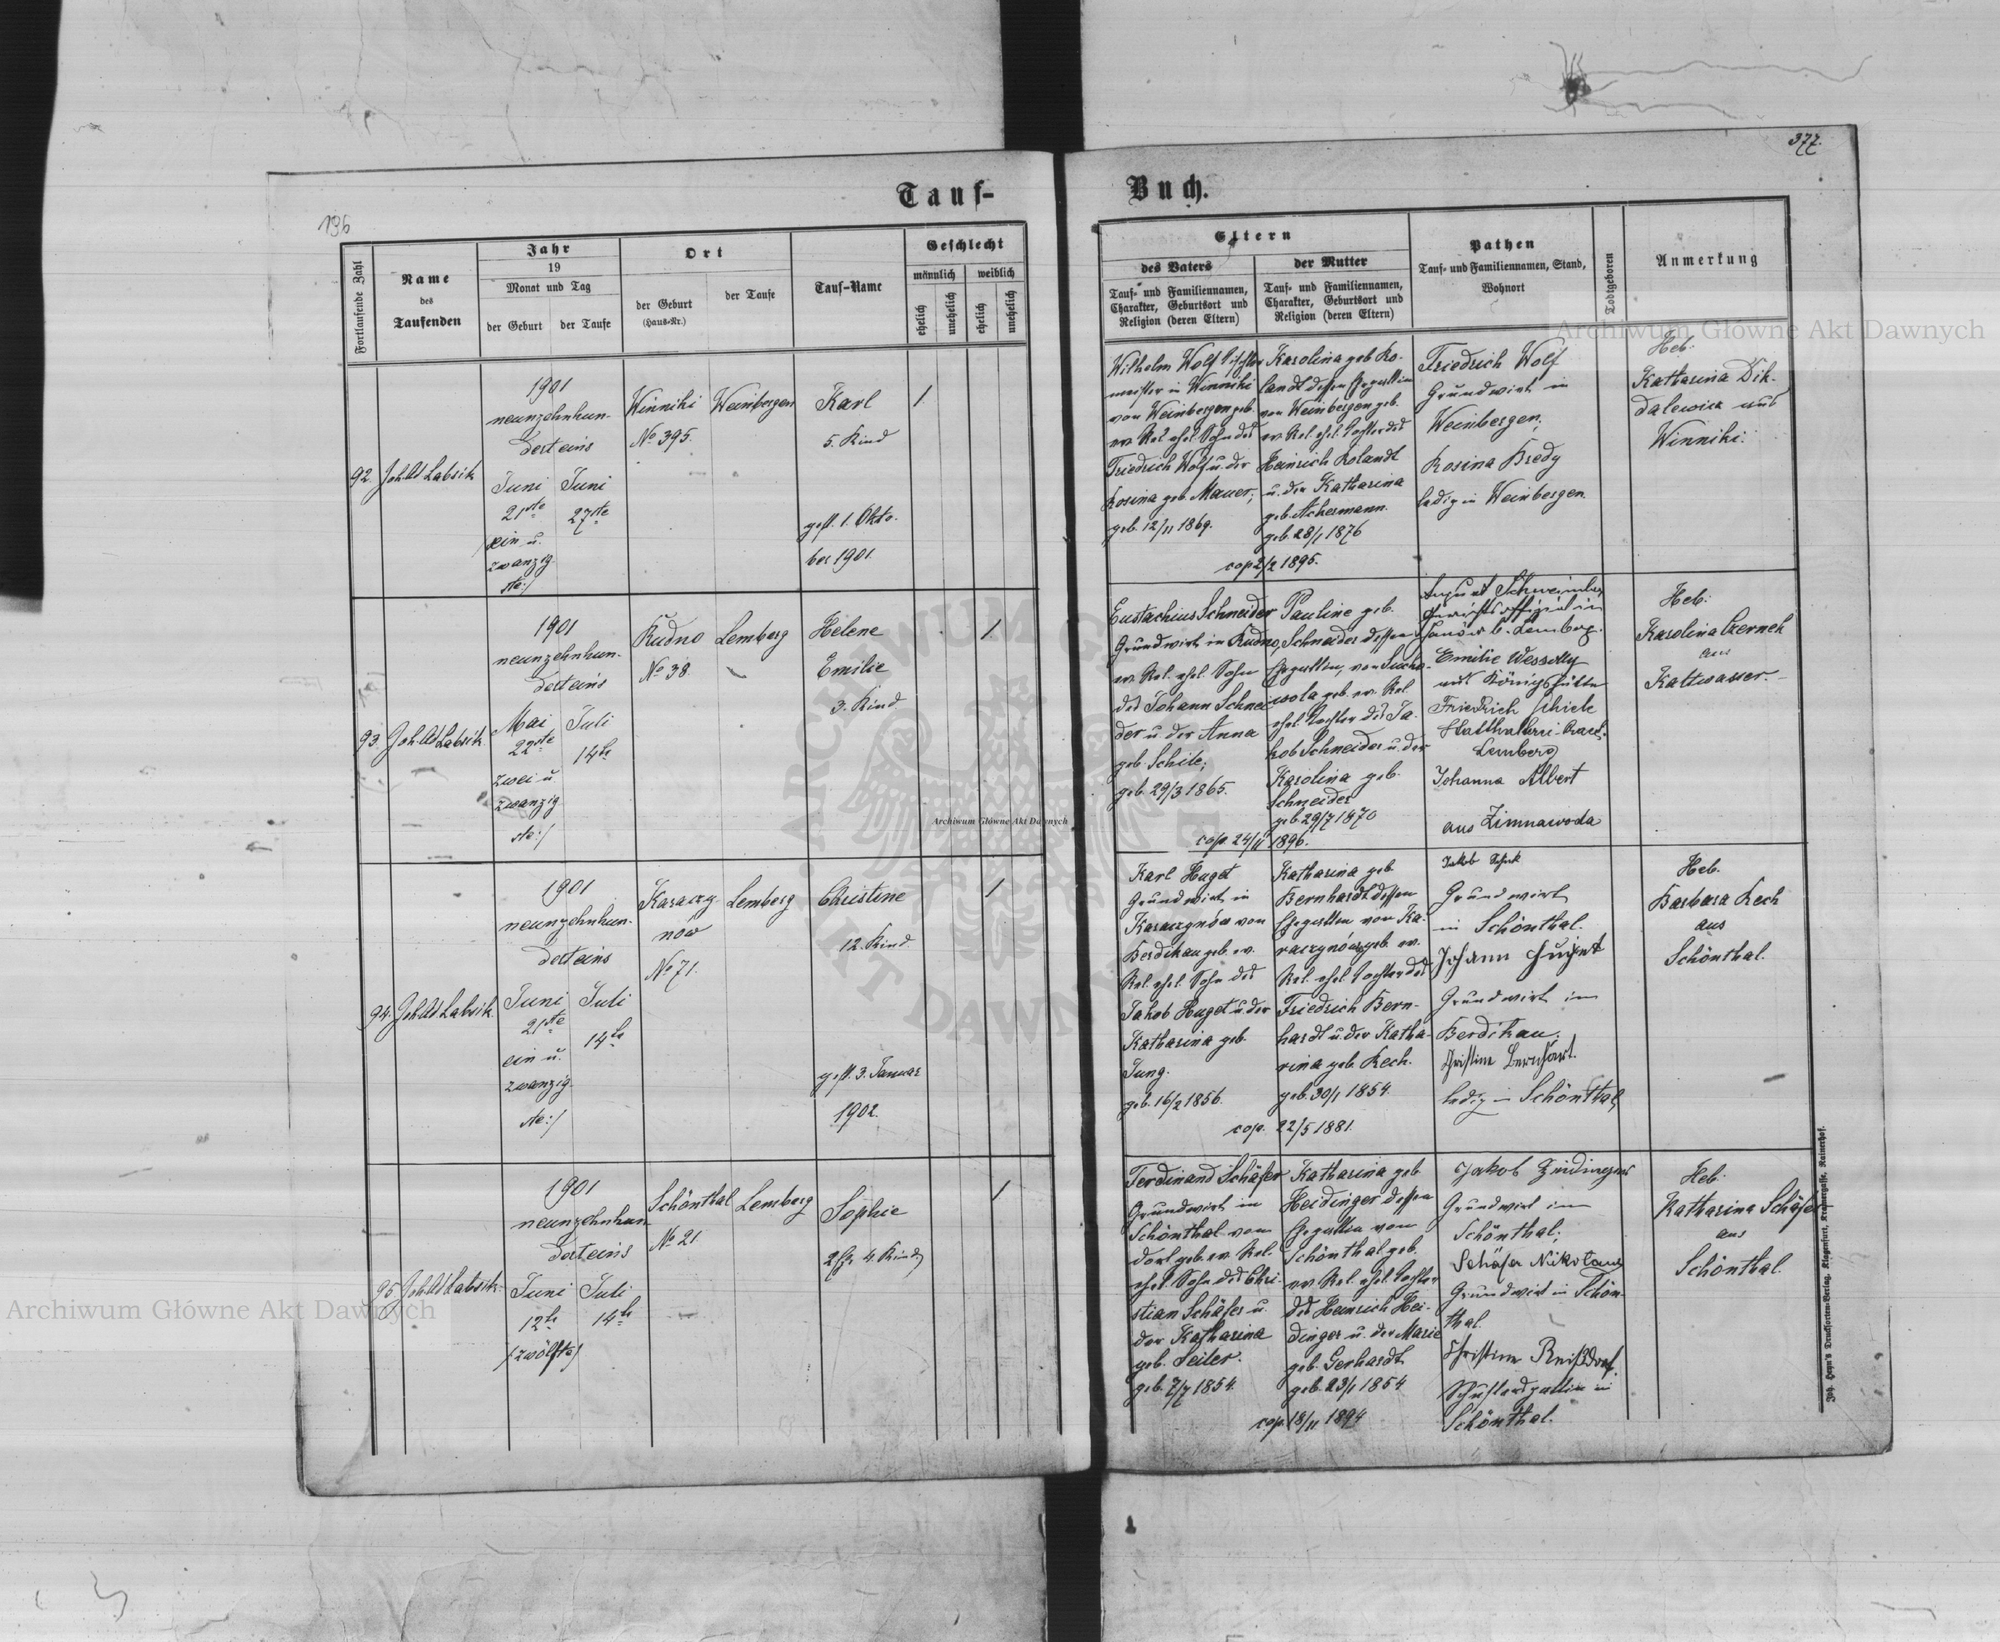 377.
Tauf-
Buch.
136
Fortlaufende Zahl
Name
des
Taufenden
Jahr
19
Monat und Tag
der Geburt
der Taufe
Ort
der Geburt
(Haus-Nr.)
der Taufe
Tauf-Name
Geschlecht
männlich
weiblich
ehelich
unehelich
ehelich
unehelich
Eltern
des Vaters
Tauf- und Familiennamen,
Charakter, Geburtsort und
Religion (deren Eltern)
der Mutter
Tauf- und Familiennamen,
Charakter, Geburtsort und
Religion (deren Eltern)
Pathen
Tauf- und Familiennamen, Stand,
Wohnort
Todtgeboren
Anmerkung
92.
1901
neunzehnhun-
derteins
Juni
21ste
ein u.
zwanzig
ste:/
Juni
27ste
Winniki
No 395.
Weinbergen
Karl
5. Kind
gest. 1. Okto-
ber 1901.
/
Wilhelm Wolf Tischler
meister in Winniki
von Weinbergen geb.
ev. Rel. ehel. Sohn des
Friedrich Wolf u. der
Rosina geb. Mauer;
geb. 12/11 1869.
Karolina geb. Ro-
landt dessen Ehegattin
von Weinbergen geb.
ev. Rel. ehel. Tochter des
Heinrich Rolandt
u. der Katharina
geb. Achermann.
geb. 28/1 1876
cop 2/2 1895.
Friedrich Wolf
Grundwirt in
Weinbergen;
Rosina Bredy
ledig in Weinbergen.
Heb:
Katharina Dik-
aus
Winniki.
93.
1901
neunzehnhun-
derteins
Mai
22ste
zwei u
zwanzig
ste:/
Juli
14te
Rudno
No 38.
Lemberg
Helene
Emilie
3. Kind
/
Eustachius Schneider
Grundwirt in Rudno,
ev. Rel. ehel. Sohn
des Johann Schnei-
der u. der Anna
geb. Schile;
geb. 29/3 1865.
Pauline geb.
Schneider dessen
Ehegattin, von Sucho-
wola geb. ev. Rel.
ehel. Tochter des Ja-
kob Schneider u. der
Karolina geb.
Schneider
geb. 29/7 1870
cop. 24/11 1896.
August
in
b. Lemberg.
Emilie Wesselly
aus Königshütte
Friedrich Schick
Lemberg
Johanna Albert
aus Zimnawoda
Heb:
Karolina Czernek
aus
Kaltwasser.
94.
1901
neunzehnhun-
derteins
Juni
21ste
ein u.
zwanzig
ste:/
Juli
14te
Karaczy-
now
No 71.
Lemberg
Christine
12. Kind
gest. 3. Januar
1902.
/
Karl Huget
Grundwirt in
Karaczynów von
Berdikau geb. ev.
Rel. ehel. Sohn des
Jakob Huget u. der
Katharina geb.
Jung.
geb. 16/2 1856.
Katharina geb.
Bernhardt dessen
Ehegattin von Ka-
raczynów geb. ev.
Rel. ehel. Tochter des
Friedrich Bern-
hardt u. der Katha-
rina geb. Kech.
geb. 30/1 1854.
cop. 22/5 1881.
Jakob
Grundwirt
in Schönthal.
Johann Huget
Grundwirt in
Berdikau;
Christine Bernhart.
ledig in Schönthal,
Heb.
Barbara Kech
aus
Schönthal.
95.
1901
neunzehnhun
derteins
Juni
12te
/zwölfte/
Juli
14te
Schönthal
No 21.
Lemberg
Sophie
4 Kind
/
Ferdinand Schäfer
Grundwirt in
Schönthal von
dort geb. ev. Rel.
ehel. Sohn des Chri-
stian Schäfer u.
der Katharina
geb. Seiler.
geb. 7/7 1854.
Katharina geb.
Heidinger dessen
Ehegattin von
Schönthal geb.
ev. Rel. ehel. Tochter
des Heinrich Hei-
dinger u. der Marie
geb. Gerhardt
geb. 23/1 1854
cop. 18/11 1894
Jakob Heidinger
Grundwirt in
Schönthal;
Schäfer Nikolaus
Grundwirt in Schön-
thal.
Christine Reißdorf.
in
Schönthal.
Heb.
Katharina Schäfer
aus
Schönthal.
Joh. Heyn's Drucksorten-Verlag, Klagenfurt, Kramergasse, Rainerhof.
Archiwum Główne Akt Dawnych
Archiwum Główne Akt Dawnych
Archiwum Główne Akt Dawnych